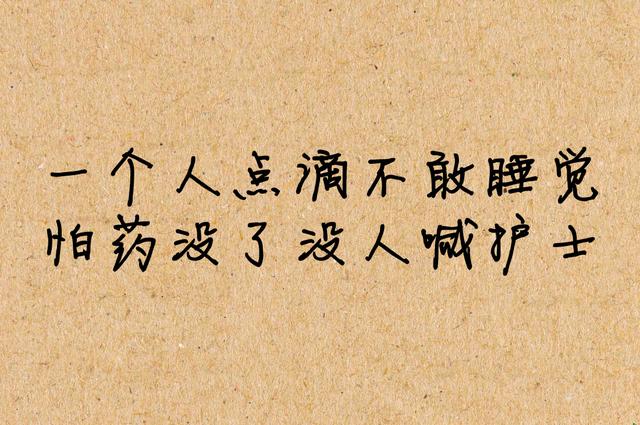 一个人点滴不敢睡觉
怕药没了没人喊护士